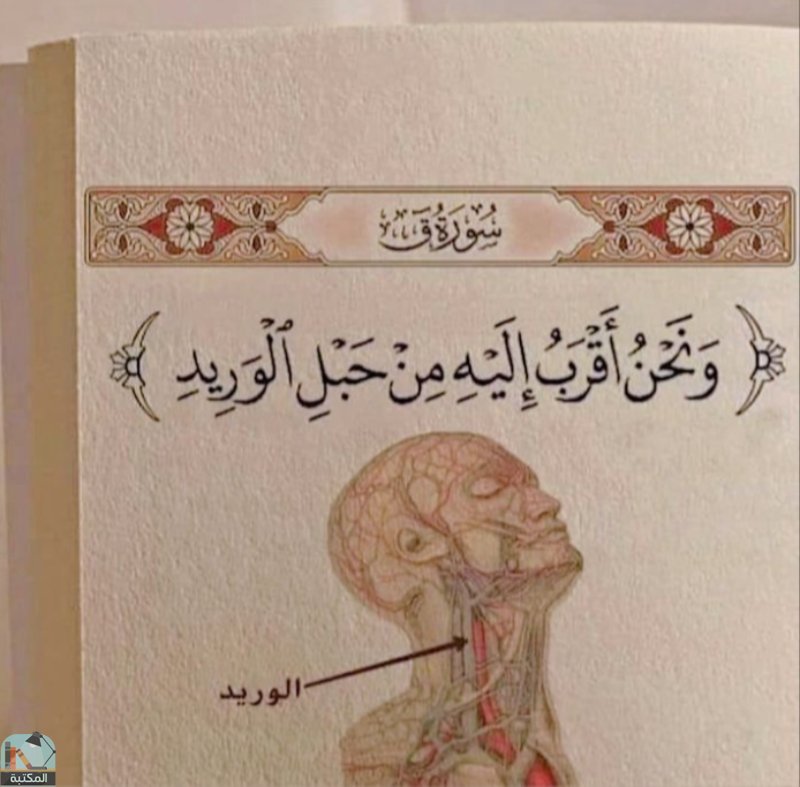 سُورَةُ قٓ
﴿ وَنَحْنُ أَقْرَبُ إِلَيْهِ مِنْ حَبْلِ ٱلْوَرِيدِ ﴾
الوريد
المكتبة